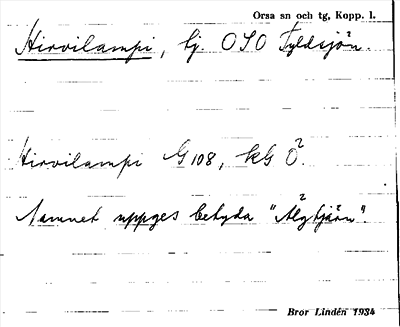 Orsa sn och tg, Kopp. l.
Hirvilampi, tj. OSO Fyldsjön.
Hirvilampi G 108, kG Ö².
Namnet uppges betyda "Älgtjärn".
Bror Lindén 1934